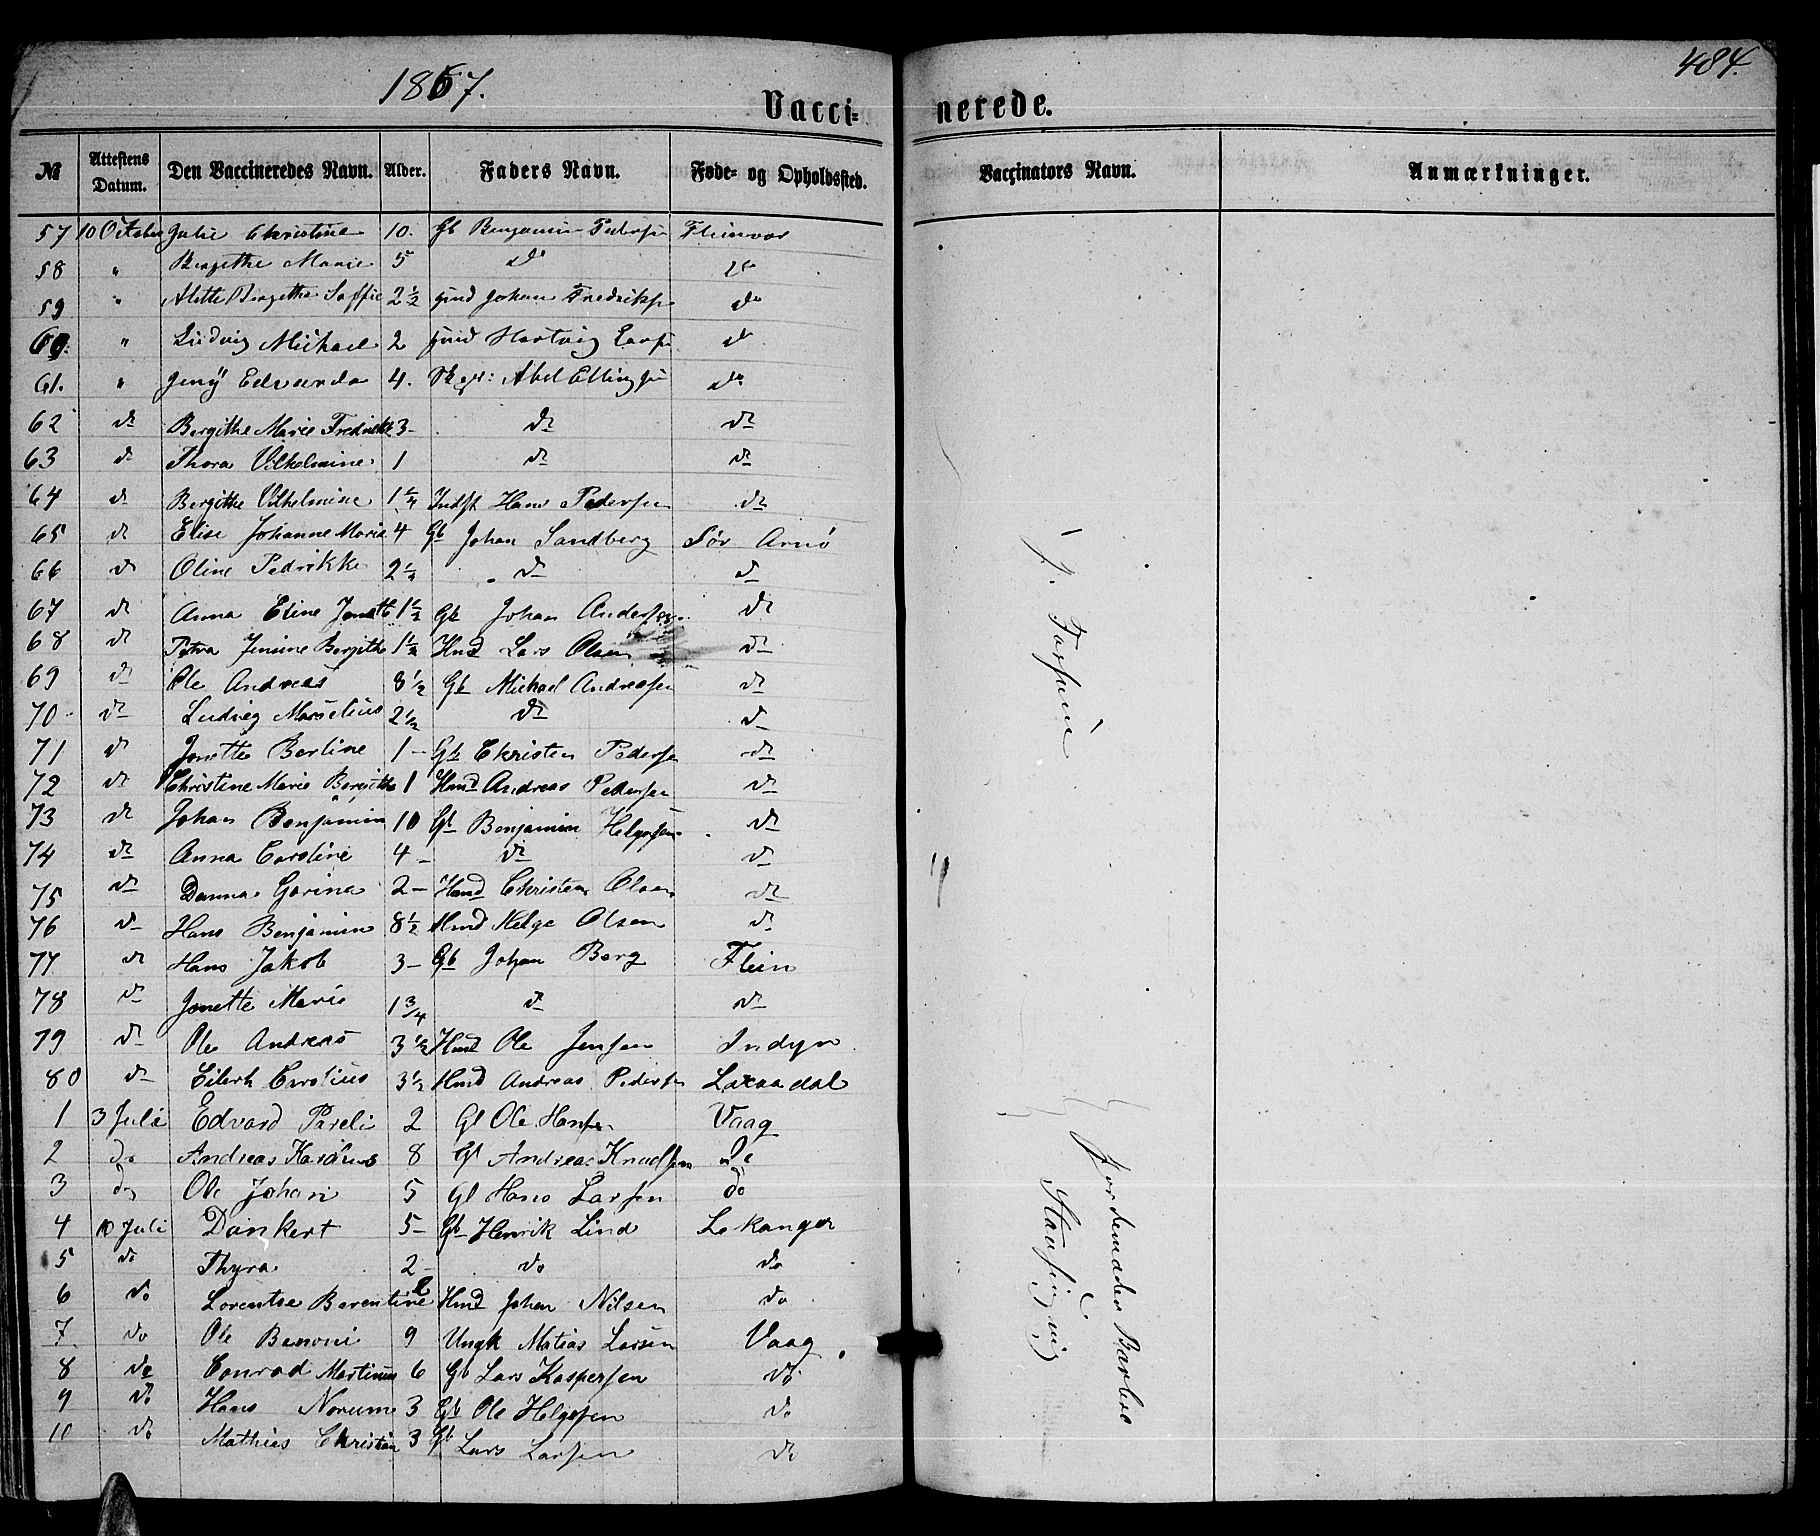 1867.
484.
Vacci= nerede.
№ Attestens Datum. Den Vaccineredes Navn. Alder. Faders Navn. Føde- og Opholdssted. Vaccinators Navn. Anmærkninger.
57 10 October Julie Christine 10. Gb Benjamin Pedersen Fleinvær
58 " Bergithe Marie 5 do do
59 " Alette Bergitha Soffie 2½ Johan Fredriksen do
60. " Ludvig Michael 2 Hartvig do
61. " Jeny Edvarda 4. Abel Ellingsen do
62 do Bergithe Marie Fredrikke 3- do do
63 do Thora Vilhelmine 1 do do
64 do Bergithe Vilhelmine 1¼ Indst Hans Pedersen do
65 do Elise Johanne Marie 4 Gb Johan Sandberg Sør Arnø
66 do Oline Pedrikke 2¼ do do
67 do Anna Eline Jonette 1½ Gb Johan Andersen do
68 do Petra Jensine Bergithe 1½ Hmd Lars Olsen do
69 do Ole Andreas 8½ Gb Michael Andreasen do
70 do Ludvig Marselius 2½ do do
71 do Jonette Berline 1- Gb Christen Pedersen do
72 do Christine Marie Bergitha 1 Hmd Andreas Pedersen do
73 do Johan Benjamin 10 Gb Benjamin Helgesen do
74 do Anna Caroline 4- do do
75 do Danna Gorina 2- Hmd Christen Olsen do
76 do Hans Benjamin 8½ Hmd Helge Olsen do
77 do Hans Jakob 3- Gb Johan Berg Flein
78 do Jonette Marie 1¾ do do
79 do Ole Andreas 3½ Hmd Ole Jensen Indyr
80 do Eilert Carolius 3½ Hmd Andreas Pedersen Laxaadal
1 3 Juli Edvard Pareli 2 Gb Ole Hansen Vaag
2 do Andreas Karolius 8 Gb Andreas Knudsen do
3 do Ole Johan 5 Gb Hans Larsen do
4 10 Juli Dankert 5- Gb Henrik Lind Lekanger
5 do Thyra 2- do do
6 do Lorentse Berentine 2 Hmd Johan Nilsen do
7 do Ole Benoni 9 Ungk Matias Larsen Vaag
8 do Conrad Martinus 6 Gb Lars Kaspersen do
9 do Hans Norum 3 Gb Ole Helgesen do
10 do Mathias Christian 3 Gb Lars Larsen do
Jordemoder Barbro